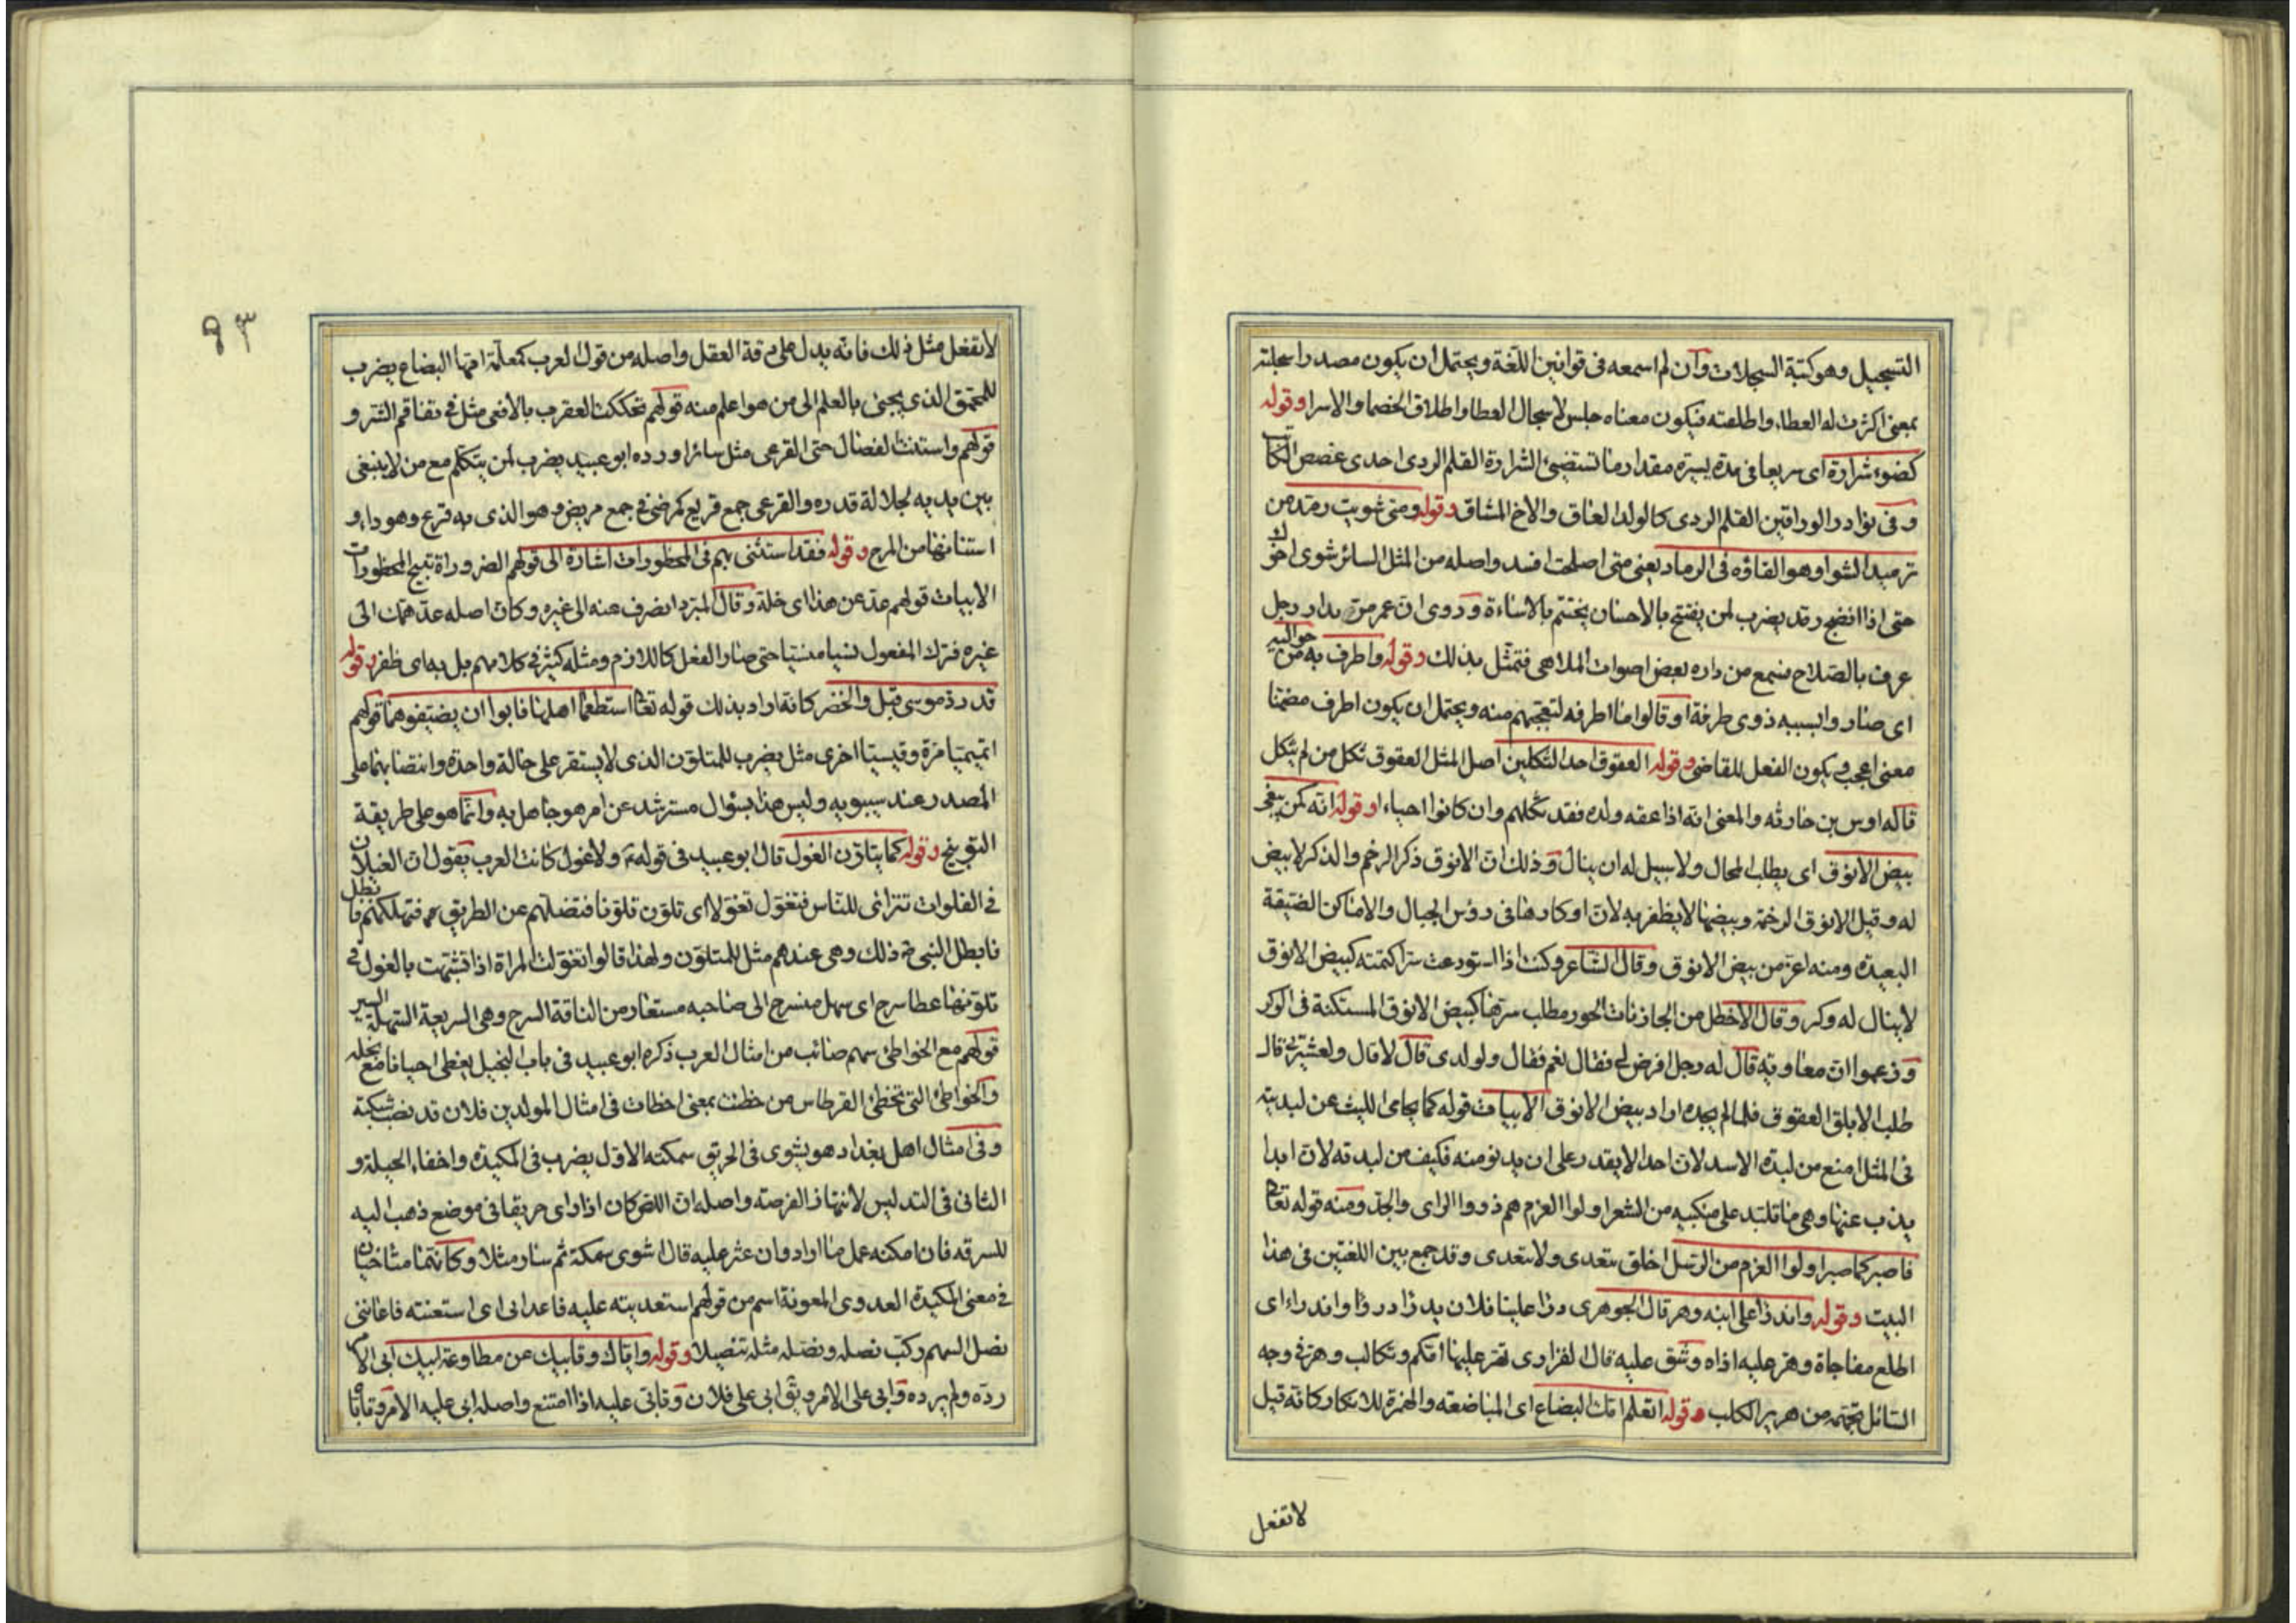 التسجيل وهو كتبة السجلات وان لم اسمعه فى قوانين اللّغة ويحتمل ان يكون مصدر اسجلته
بمعنى اكثرت له العطاء واطلعته فيكون معناه جلس لاسجال العطا واطلاق الخصما والاسرا وقوله
كضوء شرارة اى سريعا فى مدة يسيره مقدار ما تستضيئ الشرارة القلم الردى احدى غصص الكتاب
وفى نوادر الوراقين القلم الردى كالولد العاق والاخ المشاق وقوله ومتى شويت رمد من
ترميد الشوا وهو القاؤه فى الرماد يعنى متى اصلحت افسد واصله من المثل السائر شوى اخوك
حتى اذا انضج رمد يضرب لمن يفتتح بالاحسان يختتم بالاساءة وروى ان عمر مرّ بدار رجل
عرف بالصلاح فسمع من داره بعض اصوات الملاهى فتمثّل بذلك وقوله واطرف به من حواليه
اى صاروا بسببه ذوى طرفة او قالوا ما اطرفه لتعجبهم منه ويحتمل ان يكون اطرف مضمنا
معنى اعجب ويكون الفعل للقاضى وقوله العقوق احد الثكلين اصل المثل العقوق ثكل من لم يثكل
قاله اوس بن حارثه والمعنى انه اذا عقه ولده فقد ثكلهم وان كانوا احياء وقوله انه كمن يبغى
بيض الانوق اى يطلب المحال ولا سبيل له ان ينال وذلك انّ الانوق ذكر الرخم والذكر لا بيض
له وقيل الانوق الرخمة وبيضها لا يظفر به لانّ اوكارها فى رؤس الجبال والاماكن الضيقة
البعيدة ومنه اعز من بيض الانوق وقال الشاعر وكنت اذا استودعت سرّا كتمته كبيض الانوق
لا ينال له وكر وقال الاخطل من الجاذنات الحور مطلب سرّها كبيض الانوق المستكنة فى الوكر
وزعموا ان معاوية قال له رجل افرض لى فقال نعم فقال ولولدى قال لا قال ولعشيرتى قال
طلب الابلق العقوق فلما لم يجده اراد بيض الانوق الابيات قوله كما يحامى الليث عن لبدته
فى المثل امنع من لبدة الاسد لان احدا لا يقدر على ان يدنو منه فكيف من لبدته لانّ ابدا
يذب عنها وهى ما تلبّد على منكبيه من الشعر اولوا العزم هم ذووا الراى والجدّ ومنه قوله تعالى
فاصبر كما صبر اولوا العزم من الرسل اخلق يتعدى ولا يتعدى وقد جمع بين اللغتين فى هذا
البيت وقوله واندرا على ابنه وهر قال الجوهرى درا علينا فلان يدرا دروا واندراء اى
اطلع مفاجاة وهرّ عليه اذاه وشق عليه قال الفزارى تهر عليها امكم وتكالب وهرّ فى وجه
السّائل تجهّمه من هرير الكلب وقوله اتعلم امك البضاع اى المباضعه والهمزة للانكار وكانه قيل
لا تفعل
٩٣
لا تفعل مثل ذلك فانه يدل على رقة العقل واصله من قول العرب كمعلّمة امها البضاع يضرب
للمحمق الذى يجيئ بالعلم الى من هو اعلم منه قولهم تحككت العقرب بالافعى مثل فى تفاقم الشر و
قولهم واستنت الفصال حتى القرعى مثل سائر اورده ابو عبيد يضرب لمن يتكلم مع من لا ينبغى
بين يديه لجلالة قدره والقرعى جمع قريع كمرضى فى جمع مريض وهو الذى به قرع وهو داء و
استنانها من المرح وقوله فقد استثنى بهم فى المحظورات اشارة الى قولهم الضروراة تبيح المحظورات
الابيات قولهم عدّ عن هذا اى خلّه وقال المبرّد انصرف عنه الى غيره وكان اصله عدّ همّك الى
غيره فترك المفعول نسيا منسيا حتى صار الفعل كاللازم ومثله كثير فى كلامهم بل به اى ظفر وقوله
قد ردّ موسى قبل والخضر كانه اراد بذلك قوله تعالى استطعما اهلها فابوا ان يضيّفوهما قولهم
اتميميّا مرّة وقيسيّا اخرى مثل يضرب للمتلوّن الذى لا يستقر على حالة واحدة وانتصابهما على
المصدر عند سيبويه وليس هذا بسؤال مسترشد عن امر هو جاهل به وانّما هو على طريقة
التوبيخ وقوله كما يتلوّن الغول قال ابو عبيد فى قوله ولا غول كانت العرب يقول انّ الغيلان
فى الفلوات تترائى للنّاس فتغوّل تغوّلا اى تلوّن تلوّنا فتضلّهم عن الطريق فتهلكهم
فابطل النبى ذلك وهى عندهم مثل للمتلوّن ولهذا قالوا تغوّلت المراة اذا تشبّهت بالغول فى
تلوّنها عطا سرح اى سهل منسرح الى صاحبه مستعار من الناقة السرح وهى السريعة السّهلة السير
قولهم مع الخواطئ سهم صائب من امثال العرب ذكره ابو عبيد فى باب البخيل يعطى احيانا مع بخله
والخواطئ التى تخطئ القرطاس من خطئت بمعنى اخطات فى امثال المولدين فلان قد نصب شبكة
وفى امثال اهل بغداد هو يشوى فى الحريق سمكته الاوّل يضرب فى المكيدة واخفاء الحيلة و
الثانى فى التدليس لانتهاز الفرصة واصله ان اللص كان اذا راى حريقا فى موضع ذهب اليه
للسرقه فان امكنه عمل ما اراد وان عثر عليه قال اشوى سمكة ثم سار مثلا وكانّهما متاخيان
فى معنى المكيدة العدوى المعونة اسم من قولهم استعديته عليه فاعدانى اى استعنته فاعاننى
نصل السهم ركّب نصله ونصّله مثله تنصيلا وقوله واباك وقابيك عن مطاوعة لبيك ابى الامر
ردّه ولم يرده وابى على الامر وابى على فلان وتابّى عليه اذا امتنع واصله ابى عليه الامر